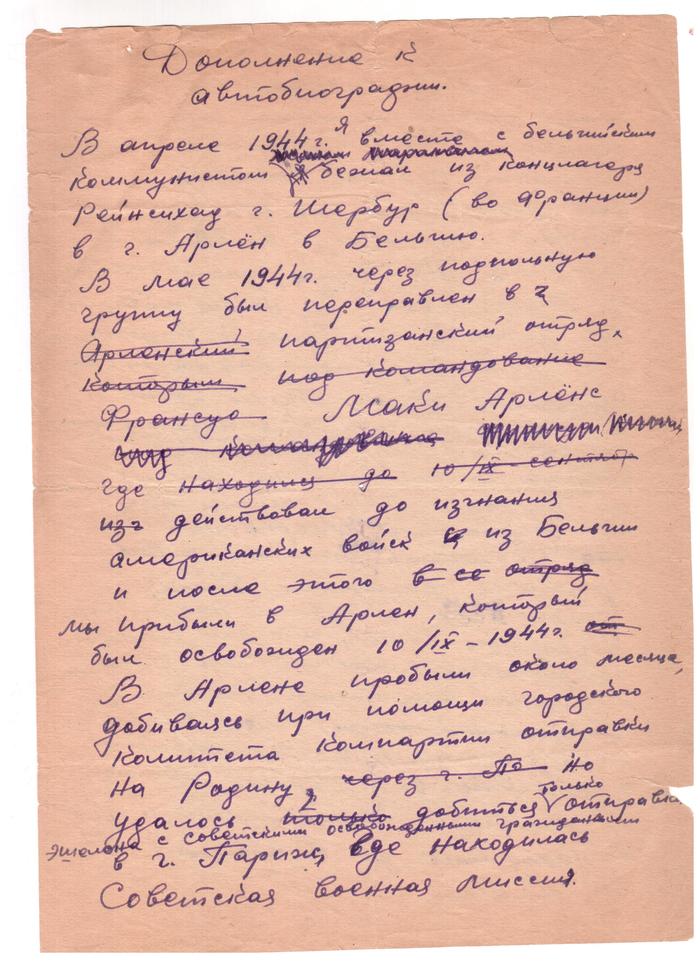 Дополнение к
автобиографии.
В апреле 1944 г. я вместе с бельгийским
коммунистом бежал из концлагеря
г. Шербур (во Франции)
в г. Арлён в Бельгию.
В мае 1944 г. через подпольную
группу был переправлен в
Арлонский партизанский отряд,
которым под командование
Франсуа Маки Арлёнс
под командование
где находился до 10/IX
из действовал до изгнания
американских войск из Бельгии
и после этого в со отряд
мы прибыли в Арлен, который
был освобожден 10/IX – 1944 г. от
В Арлене пробыли около месяца,
добиваясь при помощи городского
комитета компартии отправки
на Родину, через г. Па но
удалось только добиться только отправки
эшелона с советскими освобожденными гражданами
в г. Париж, где находилась
Советская военная миссия.